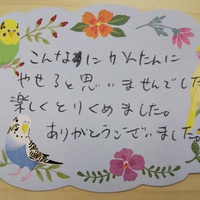 こんなにかんたんに
やせると思いませんでした
楽しくとりくめました。
ありがとうございました。